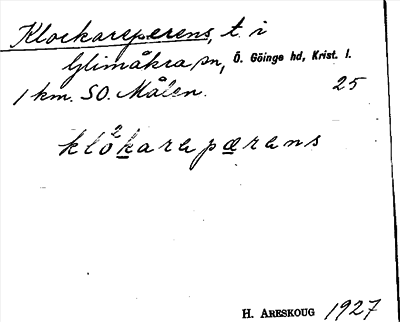 Klockareperens, t. i
Glimåkra sn, Ö. Göinge hd, Krist. l.
1 km. SO. Målen. 25
klo²karapærens
H. ARESKOUG 1927